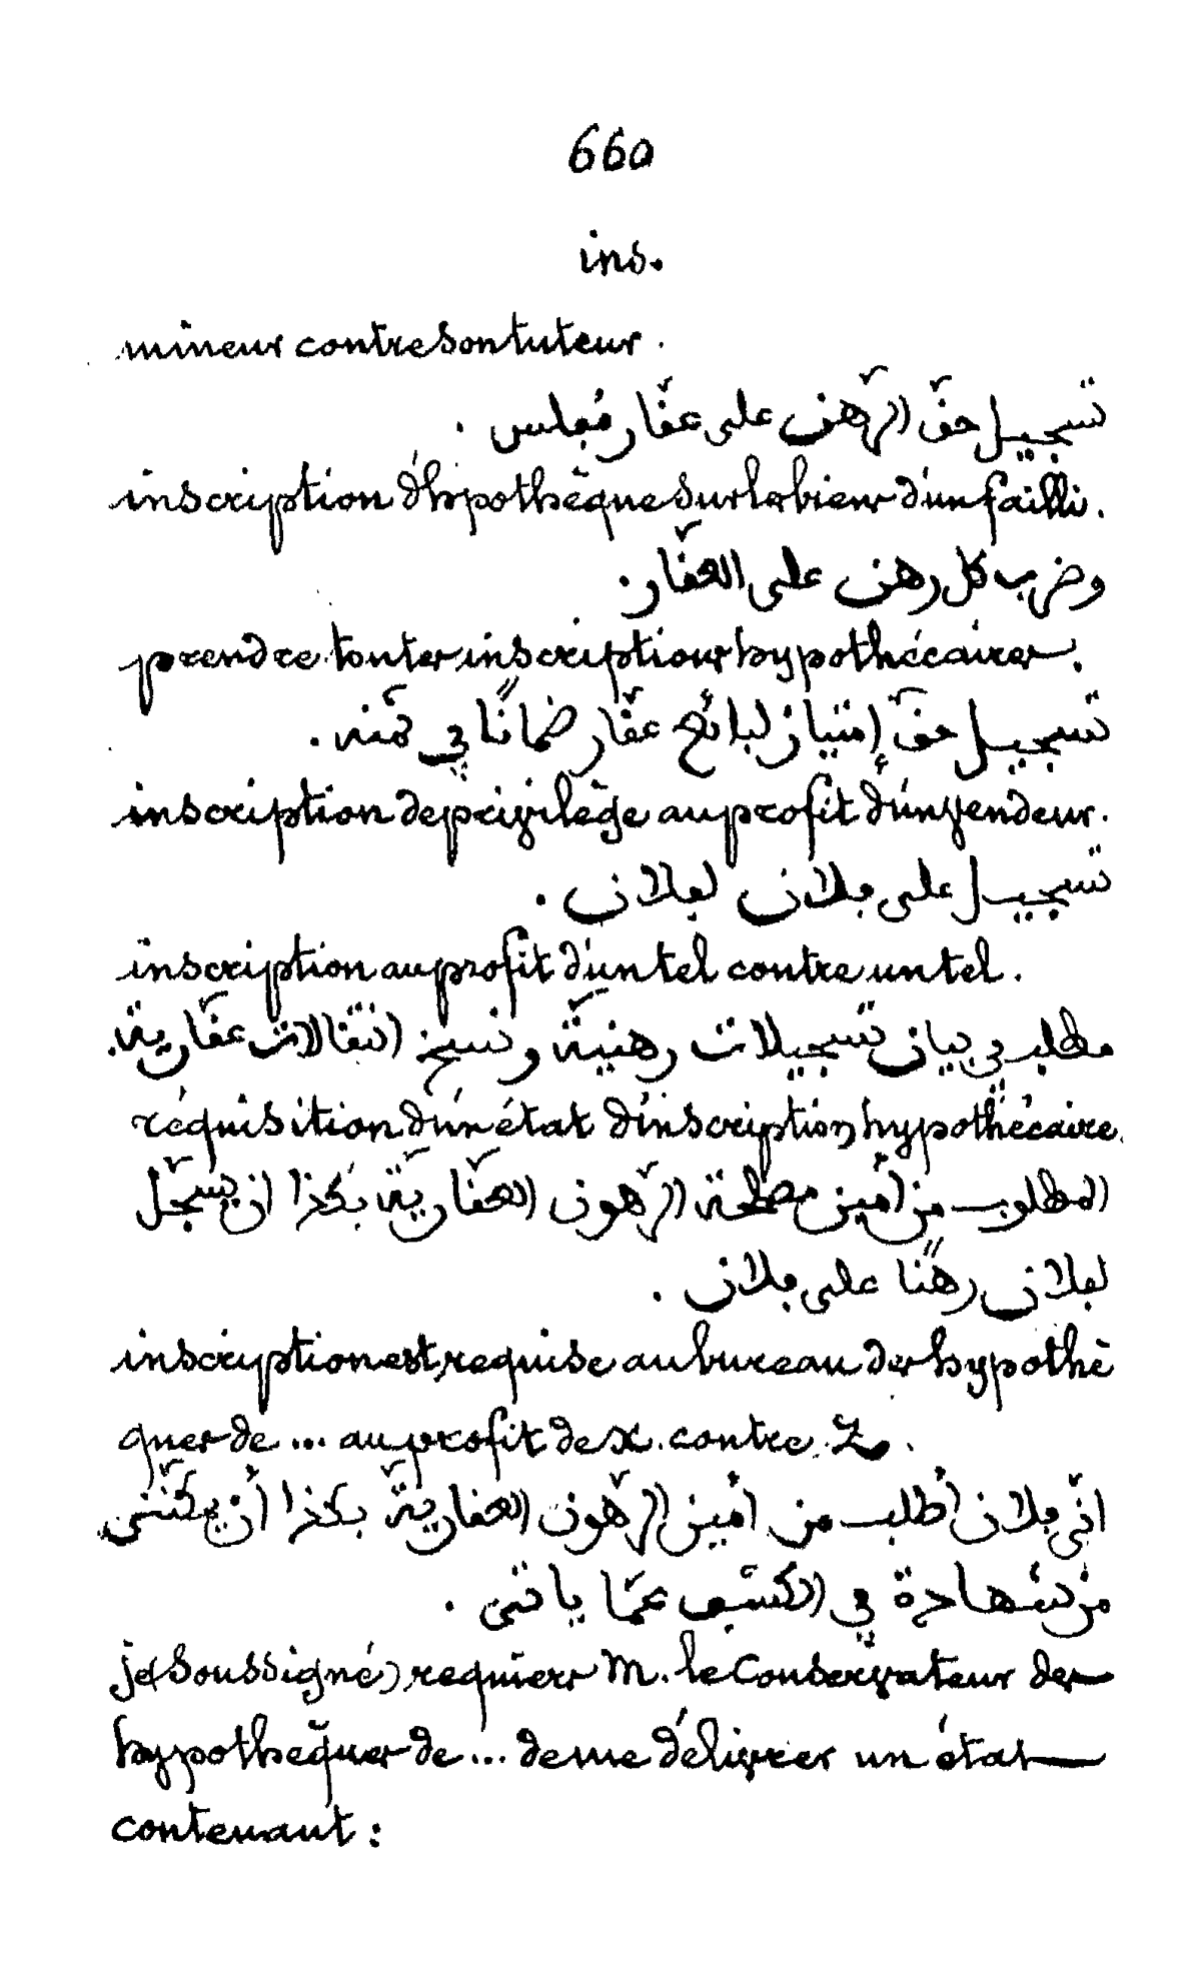 660
ins.
mineur contre son tuteur.
تسجيل حقّ الرّهن على عقّار مُفلس.
inscription d'hypothèque sur les biens d'un failli.
وضرب كل رهن على العقّار.
prendre toutes inscriptions hypothécaires.
تسجيل حقّ إمتياز لبائع عقّار ضمانًا في ثمنه.
inscription de privilège au profit d'un vendeur.
تسجيل على فلان لفلان.
inscription au profit d'un tel contre un tel.
مطلب في بيان تسجيلات رهنيّة ونسخ انتقالات عقّارية.
réquisition d'un état d'inscription hypothécaire.
المطلوب من أمين مصلحة الرّهون العقّاريّة بكذا ان يسجّل
لفلان رهنًا على فلان.
inscription est requise au bureau des hypothè
ques de ... au profit de X. contre Z.
انّي فلان أطلب من أمين الرّهون العقاريّة بكذا أن يمكّنني
من شهادة في الكشف عمّا ياتي.
je (soussigné) requiers M. le Conservateur des
hypothèques de ... de me délivrer un état
contenant :